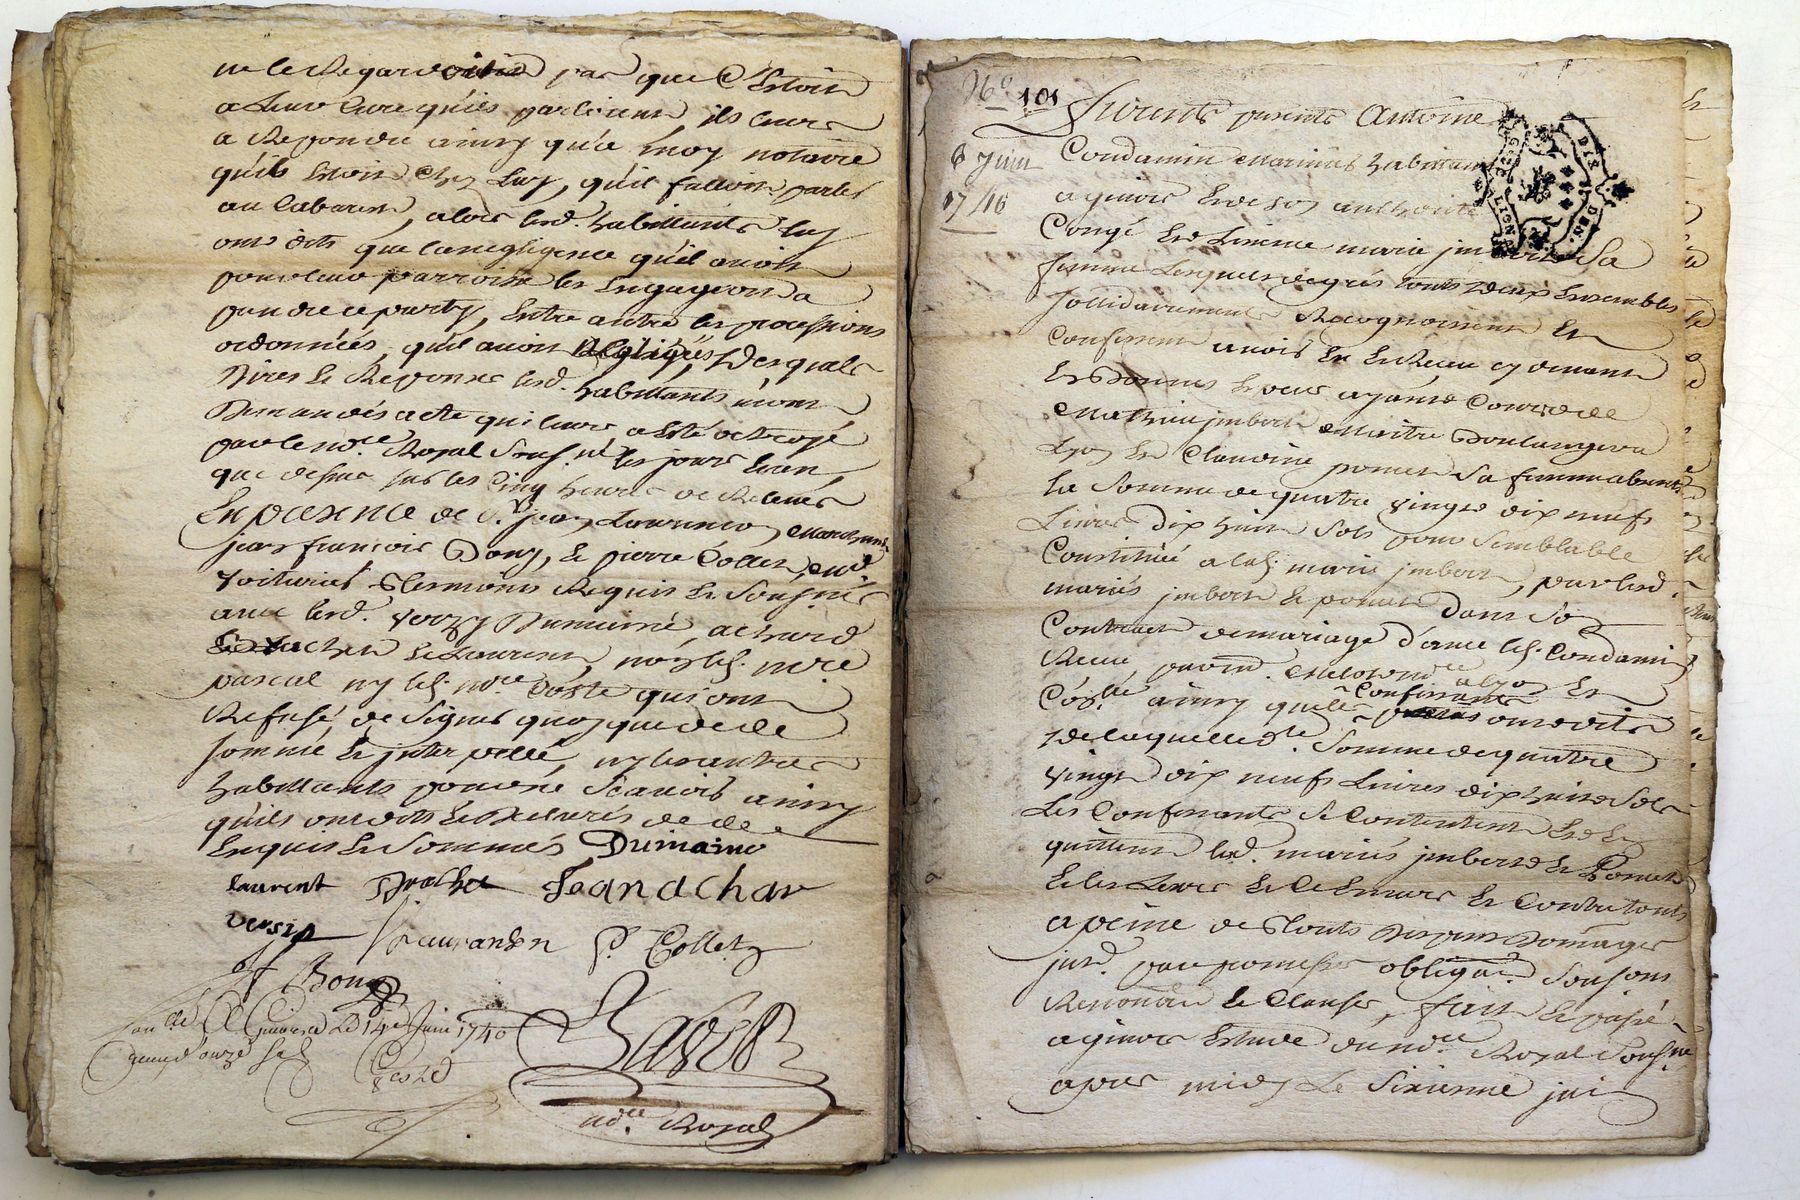 ne le Regardoit pas que C'Estoit
a leur Curé qu'ils parloient ils leurs
a Repondu ainsy qu'a moy notaire
qu'ils Estoit Chez Luy, qu'il falloit parler
au Cabaret, alors lesd. habittants luy
ont dits que la negligence qu'il avoit
pour leur parroisse les Engageoit a
prendre ce party, Entre autre les processions
ordonnées, qu'il avoit Negligées, Desquals
Dires Et Reponses lesd. habittants m'ont
Demandés acte qui leurs a Esté octroyé
par le no.re Royal Sous.né les jours Et an
que dessus sur les Cinq heures de Relevée
En presence de S.r Jean Laurenson Marchand
jean françois Bony, Et pierre Collet, m.d
Voiturier Tesmoins Requis Et Sousignés
avec lesd. Versy Dumeine, achard
Brachet Et Laurent, non led. m.re
pascal ny led. m.re Coste qui ont
Refusé de Signer quoy que de ce
Sommé Et jnterpellé, ny les autres
habittants pour ne Scavoir ainsy
qu'ils ont dits Et Declarés de ce
Enquis Et Sommés Dumaine
laurent Brachet Jean achar
versip Lauranson P. Collet
Jf Bony
Con.llé A Givors Le 14e Juin 1740
Reçu douze sols
Sabot
no.re Royal
N.o 101
6 Juin
1740
Furents presents Antoine
Condamin Marinier habittant
a givors Et de son authorité
Congé Et Licence marie jmbert Sa
femme Lesquels de grés touts deux Ensembles
Sollidairement Recognoissent Et
Confessent avoir Eu Et Receu cy devant
Et Mathieu jmbert Maitre Boulanger a
Lyon Et Claudine pomet Sa femme absents
La Somme de quatre Vingts dix neufs
Livres dix huit Sols pour Semblable
Constituée a lad. marie jmbert, par lesd.
mariés jmbert Et pomet dans Son
Contract de mariage d'avec led. Condamin
Receu par m.e
ainsy que les Confessants ont dits
De laquelle d.te Somme de quatre
Vingts dix neufs Livres dix huit Sols
Les Confessants Se Contentent Et En
quittent lesd. mariés jmbert Et Pomet
Et les Leurs Et Ce Envers Et Contre touts
a peine de Touts Depens Domages
jnts. par promesses obliga.on Soumissions
Renon.on Et Clauses, fait Et passé
a givors Etude du no.re Royal Sous.né
apres midy Le Sixieme jui